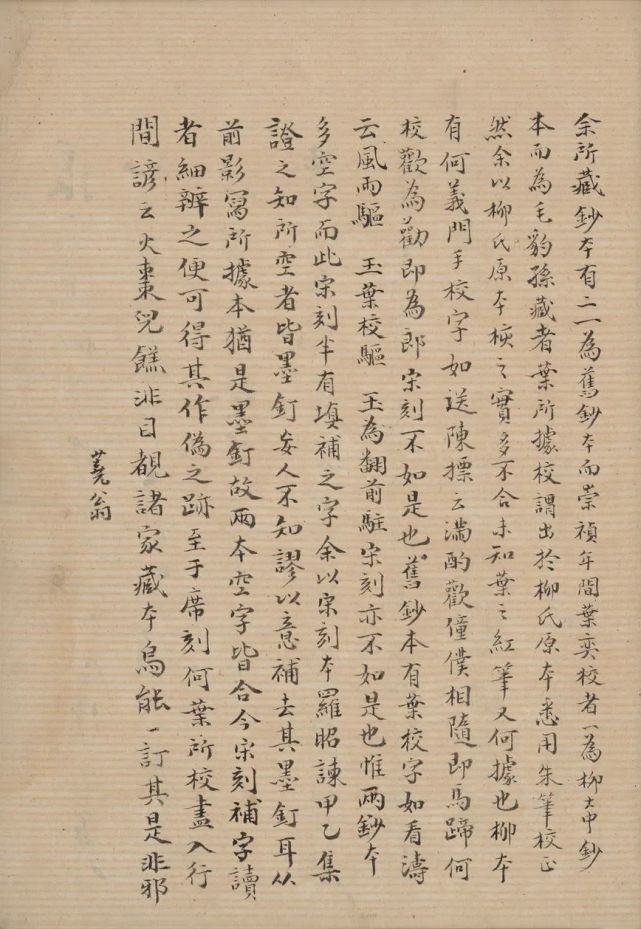 余所藏鈔本有二一為舊鈔本而崇禎年間葉奕校者一為柳大中鈔
本而為毛豹孫藏者葉所據校謂出於柳氏原本悉用朱筆校正
然余以柳氏原本核之實多不合未知葉之紅筆又何據也柳本
有何義門手校字如送陳摽云滿酌歡僮僕相隨即馬蹄何
校歡為勸即為郎宋刻不如是也舊鈔本有葉校字如看濤
云風雨驅 玉葉校驅 玉為翻前駐宋刻亦不如是也惟兩鈔本
多空字而此宋刻半有填補之字余以宋刻本羅昭諫甲乙集
證之知所空者皆墨釘妄人不知謬以意補去其墨釘耳从
前影寫所據本猶是墨釘故兩本空字皆合今宋刻補字讀
者細辨之便可得其作偽之跡至于席刻何葉所校盡入行
間諺云火棗兒餻非目覩諸家藏本烏能一訂其是非邪
蕘翁